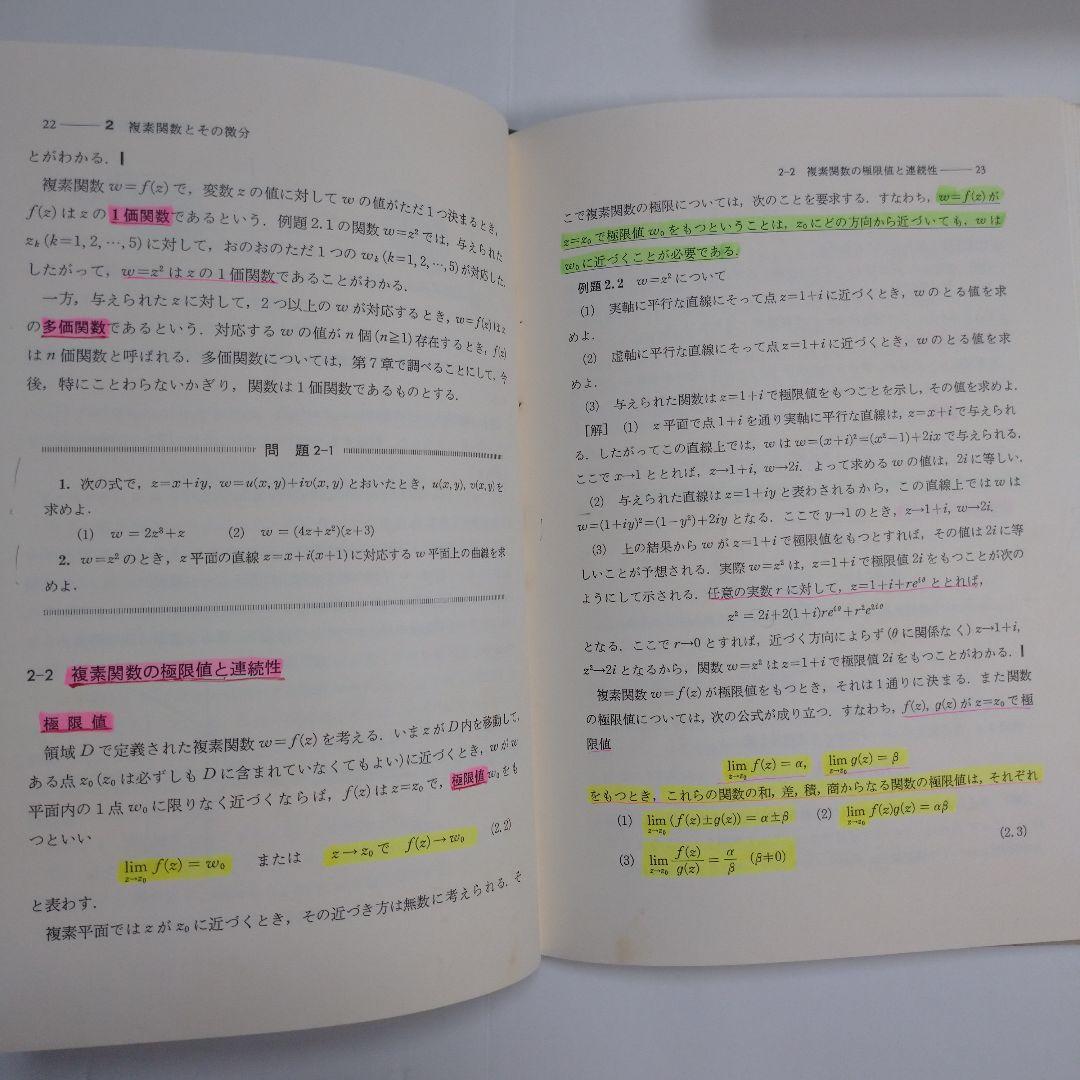 22 —— 2 複素関数とその微分
とがわかる. ▌
複素関数 w=f(z) で, 変数 z の値に対して w の値がただ1つ決まるとき,
f(z) は z の 1価関数であるという. 例題 2.1 の関数 w=z² では, 与えられた
zₖ (k=1, 2, …, 5) に対して, おのおのただ1つの wₖ (k=1, 2, …, 5) が対応した.
したがって, w=z² は z の1価関数であることがわかる.
一方, 与えられた z に対して, 2つ以上の w が対応するとき, w=f(z) は z
の多価関数であるという. 対応する w の値が n 個 (n≧1) 存在するとき, f(z)
は n 価関数と呼ばれる. 多価関数については, 第7章で調べることにして, 今
後, 特にことわらないかぎり, 関数は1価関数であるものとする.
問 題 2-1
1. 次の式で, z=x+iy, w=u(x, y)+iv(x, y) とおいたとき, u(x, y), v(x, y) を
求めよ.
(1) w=2z³+z (2) w=(4z+z²)(z+3)
2. w=z² のとき, z 平面の直線 z=x+i(x+1) に対応する w 平面上の曲線を求
めよ.
2-2 複素関数の極限値と連続性
極限値
領域 D で定義された複素関数 w=f(z) を考える. いま z が D 内を移動して,
ある点 z₀ (z₀ は必ずしも D に含まれていなくてもよい) に近づくとき, w が w
平面内の1点 w₀ に限りなく近づくならば, f(z) は z=z₀ で, 極限値 w₀ をも
つといい
lim_{z→z₀} f(z)=w₀ または z→z₀ で f(z)→w₀ (2.2)
と表わす.
複素平面では z が z₀ に近づくとき, その近づき方は無数に考えられる. そ
2-2 複素関数の極限値と連続性 —— 23
こで複素関数の極限については, 次のことを要求する. すなわち, w=f(z) が
z=z₀ で極限値 w₀ をもつということは, z₀ にどの方向から近づいても, w は
w₀ に近づくことが必要である.
例題 2.2 w=z² について
(1) 実軸に平行な直線にそって点 z=1+i に近づくとき, w のとる値を求
めよ.
(2) 虚軸に平行な直線にそって点 z=1+i に近づくとき, w のとる値を求
めよ.
(3) 与えられた関数は z=1+i で極限値をもつことを示し, その値を求めよ.
[解] (1) z 平面で点 1+i を通り実軸に平行な直線は, z=x+i で与えられ
る. したがってこの直線上では, w は w=(x+i)²=(x²−1)+2ix で与えられる.
ここで x→1 ととれば, z→1+i, w→2i. よって求める w の値は, 2i に等しい.
(2) 与えられた直線は z=1+iy と表わされるから, この直線上では w は
w=(1+iy)²=(1−y²)+2iy となる. ここで y→1 のとき, z→1+i, w→2i.
(3) 上の結果から w が z=1+i で極限値をもつとすれば, その値は 2i に等
しいことが予想される. 実際 w=z² は, z=1+i で極限値 2i をもつことが次の
ようにして示される. 任意の実数 r に対して, z=1+i+re^{iθ} ととれば,
z²=2i+2(1+i)re^{iθ}+r²e^{2iθ}
となる. ここで r→0 とすれば, 近づく方向によらず (θ に関係なく) z→1+i,
z²→2i となるから, 関数 w=z² は z=1+i で極限値 2i をもつことがわかる. ▌
複素関数 w=f(z) が極限値をもつとき, それは1通りに決まる. また関数
の極限値については, 次の公式が成り立つ. すなわち, f(z), g(z) が z=z₀ で極
限値
lim_{z→z₀} f(z)=α, lim_{z→z₀} g(z)=β
をもつとき, これらの関数の和, 差, 積, 商からなる関数の極限値は, それぞれ
(1) lim_{z→z₀} (f(z)±g(z))=α±β (2) lim_{z→z₀} f(z)g(z)=αβ
(2.3)
(3) lim_{z→z₀} f(z)/g(z)=α/β (β≠0)